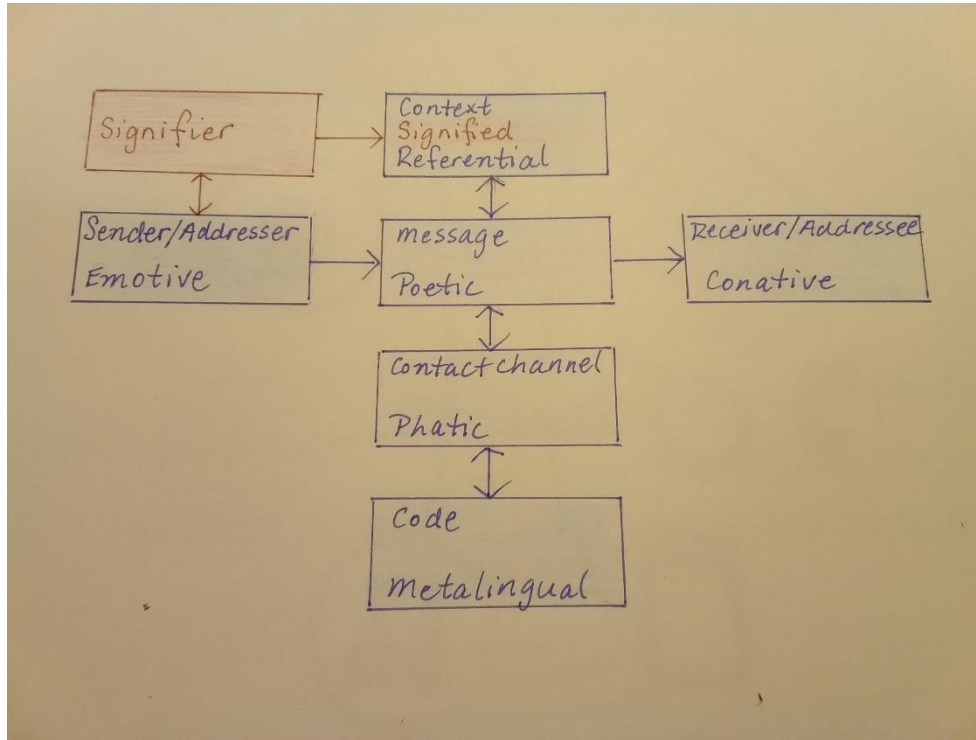 Signifier
Context
Signified
Referential
Sender/Addresser
Emotive
message
Poetic
Receiver/Addressee
Conative
Contact channel
Phatic
Code
metalingual